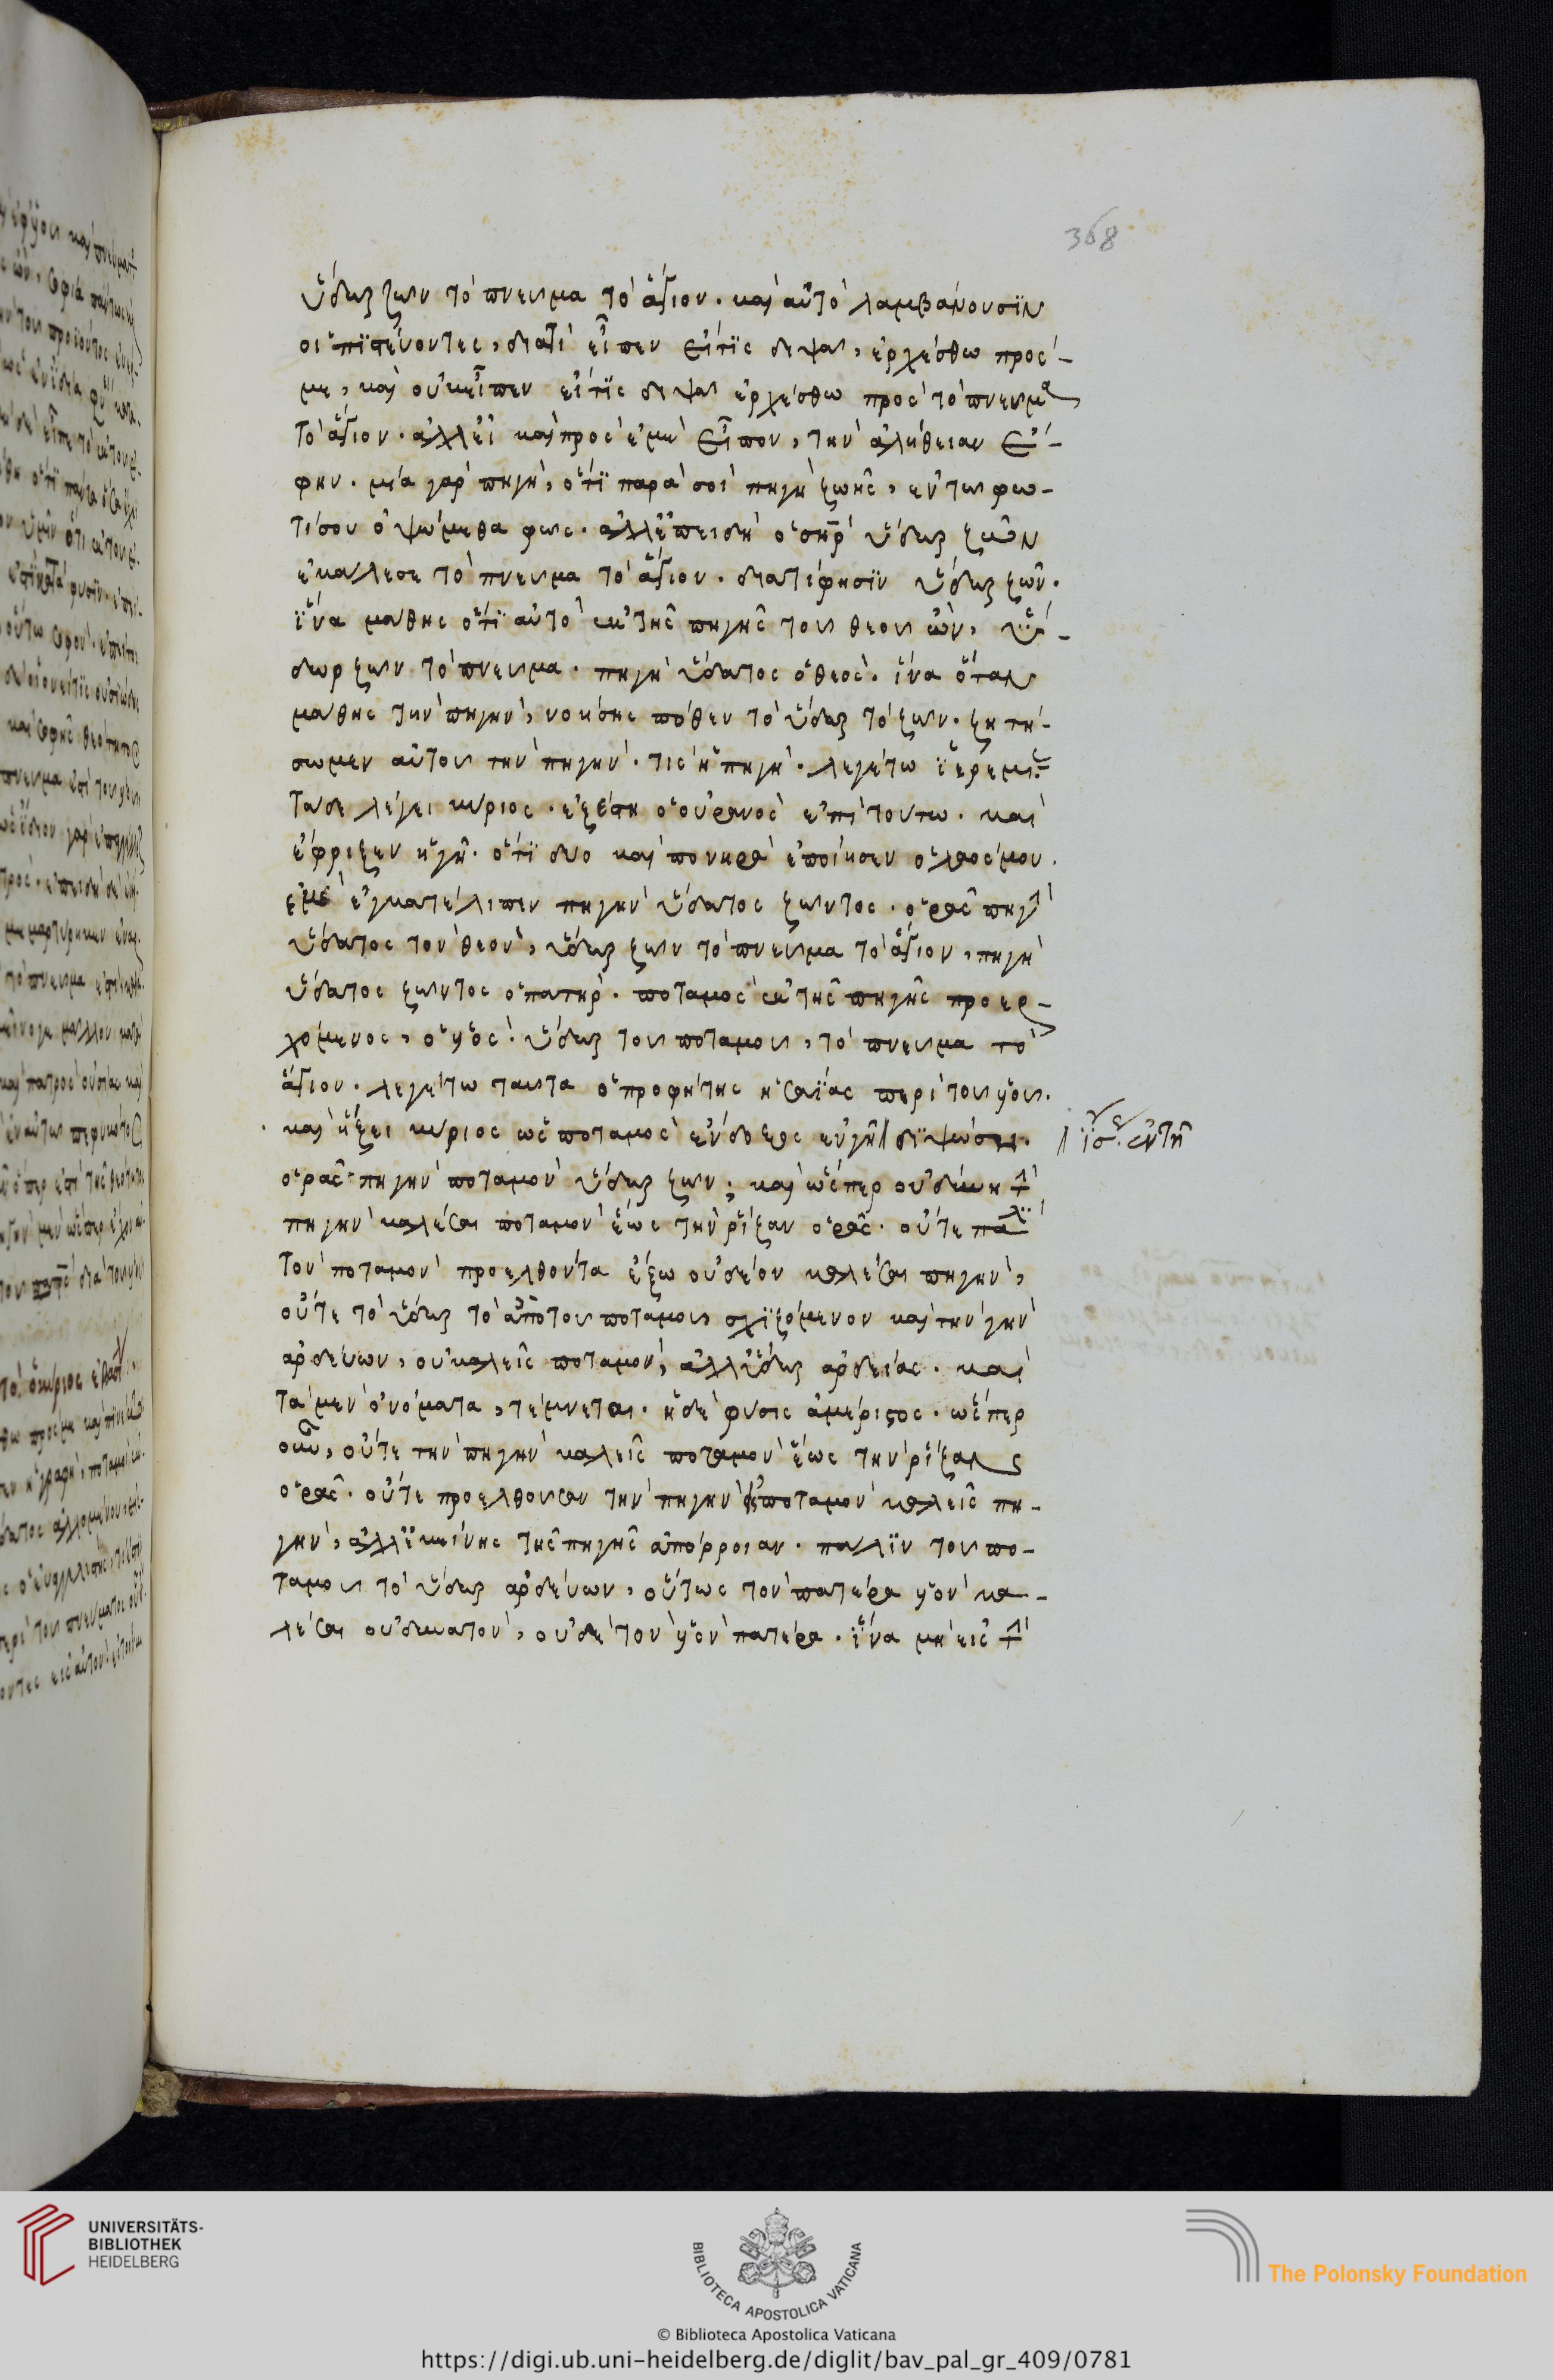 368
ὕδωρ ζῶν τὸ πνεῦμα τὸ ἅγιον. καὶ αὐτὸ λαμβάνουσϊν
οἱ πϊστεύοντες, διατί εἶπεν εἴ τϊς διψᾶ, ἐρχέσθω πρός
με, καὶ οὐκ εἶπεν εἴ τϊς διψᾶ ἐρχέσθω πρὸς τὸ πνεῦμα
τὸ ἅγιον. ἀλλ εἰ καὶ πρὸς ἐμὲ εἶπον, τὴν ἀλήθειαν ἔ-
φην. μία γὰρ πηγή, ὅτϊ παρὰ σοὶ πηγὴ ζωῆς, ἐν τῶ φω-
τί σου ὀψόμεθα φῶς. ἀλλ ἐπειδὴ ὁ σηρ ὕδωρ ζῶν
ἐκάλεσε τὸ πνεῦμα τὸ ἅγιον. διατί φησϊν ὕδωρ ζῶν.
ἵνα μάθης ὅτϊ αὐτὸ ἐκ τῆς πηγῆς τοῦ θεοῦ ὤν, ὕ-
δωρ ζῶν τὸ πνεῦμα. πηγὴ ὕδατος ὁ θεός. ἵνα ὅταν
μάθης τὴν πηγήν, νοήσης πόθεν τὸ ὕδωρ τὸ ζῶν. ζητή-
σωμεν αὐτοῦ τὴν πηγήν. τίς ἡ πηγή. λεγέτω ϊερεμίας
τάδε λέγει κύριος. ἐξέστη ὁ οὐρανὸς ἐπὶ τούτω. καὶ
ἔφριξεν ἡ γῆ. ὅτϊ δύο καὶ πονηρὰ ἐποίησεν ὁ λαός μου.
ἐμὲ ἐγκατέλιπεν πηγὴν ὕδατος ζῶντος. ὁρᾶς πηγὴν
ὕδατος τὸν θεόν, ὕδωρ ζῶν τὸ πνεῦμα τὸ ἅγιον, πηγὴ
ὕδατος ζῶντος ὁ πατήρ. ποταμὸς ἐκ τῆς πηγῆς προερ-
χόμενος, ὁ υἱός. ὕδωρ τοῦ ποταμοῦ, τὸ πνεῦμα τὸ
ἅγιον. λεγέτω ταῦτα ὁ προφήτης ἡσαΐας περὶ τοῦ υἱοῦ.
καὶ ἥξει κύριος ὡς ποταμὸς ἔνδοξος ἐν γῆ διψώση.
ἴσ. ἐν τῆ
ὁρᾶς πηγὴν ποταμὸν ὕδωρ ζῶν; καὶ ὥσπερ οὐδέπω τὴν
πηγὴν καλέσαι ποταμὸν ἕως τὴν ῥίζαν ὁρᾶς. οὔτε πάλϊν
τὸν ποταμὸν προελθόντα ἔξω οὐδέον καλέσαι πηγήν,
οὔτε τὸ ὕδωρ τὸ ἀπὸ τοῦ ποταμοῦ σχϊζόμενον καὶ τὴν γῆν
ἀρδεύων, οὐ καλεῖς ποταμόν, ἀλλ ὕδωρ ἀρδείας. καὶ
τὰ μὲν ὀνόματα, τέμνεται. ἡ δὲ φύσις ἀμέριστος. ὥσπερ
οὖν, οὔτε τὴν πηγὴν καλεῖς ποταμὸν ἕως τὴν ῥίζαν
ὁρᾶς. οὔτε προελθοῦσαν τὴν πηγὴν ποταμὸν καλεῖς πη-
γήν, ἀλλ ἐκείνης τῆς πηγῆς ἀπόρροιαν. πάλϊν τοῦ πο-
ταμοῦ τὸ ὕδωρ ἀρδεύων, οὕτως τὸν πατέρα υἱὸν κα-
λέσαι οὐ δυνατόν, οὐδὲ τὸν υἱὸν πατέρα. ἵνα μὴ εἰς τὴν
UNIVERSITÄTS-
BIBLIOTHEK
HEIDELBERG
BIBLIOTECA APOSTOLICA VATICANA
The Polonsky Foundation
© Biblioteca Apostolica Vaticana
https://digi.ub.uni-heidelberg.de/diglit/bav_pal_gr_409/0781